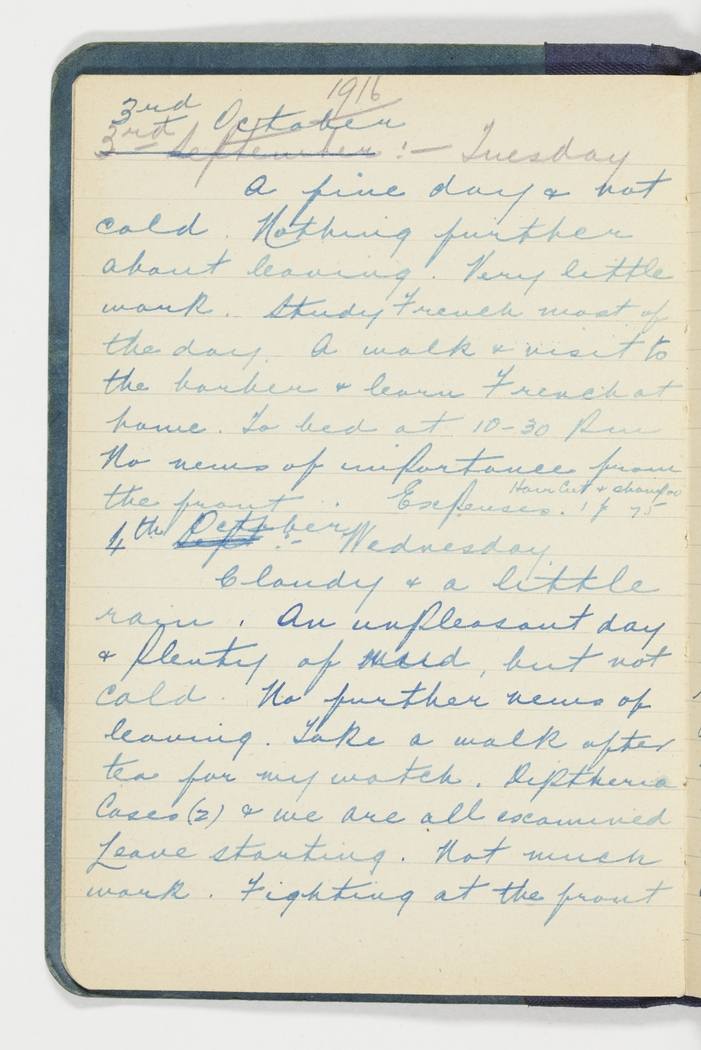 1916
3rd October
3rd September :- Tuesday
A fine day & not
cold. Nothing further
about leaving. Very little
work. Study French most of
the day. A walk & visit to
the barber & learn French at
home. To bed at 10-30 Pm
No news of importance from
Hair Cut &
the front. Expenses. 1f 75
4th October
Sept :- Wednesday
Cloudy & a little
rain. An unpleasant day
& plenty of mud, but not
cold. No further news of
leaving. Take a walk after
tea for my watch. Diptheria
Cases (2) & we are all examined
Leave starting. Not much
work. Fighting at the front